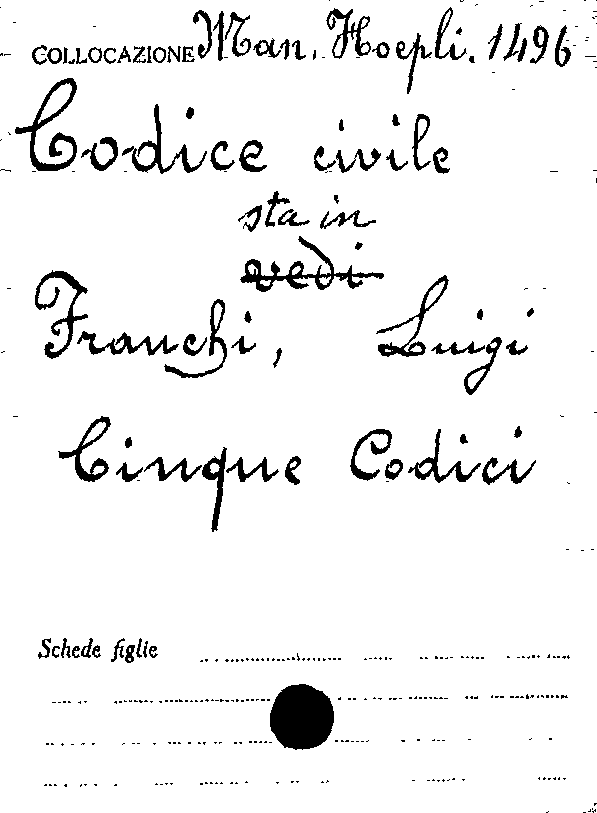 COLLOCAZIONE Man. Hoepli. 1496
Codice civile
sta in
vedi
Franchi, Luigi
Cinque Codici
Schede figlie